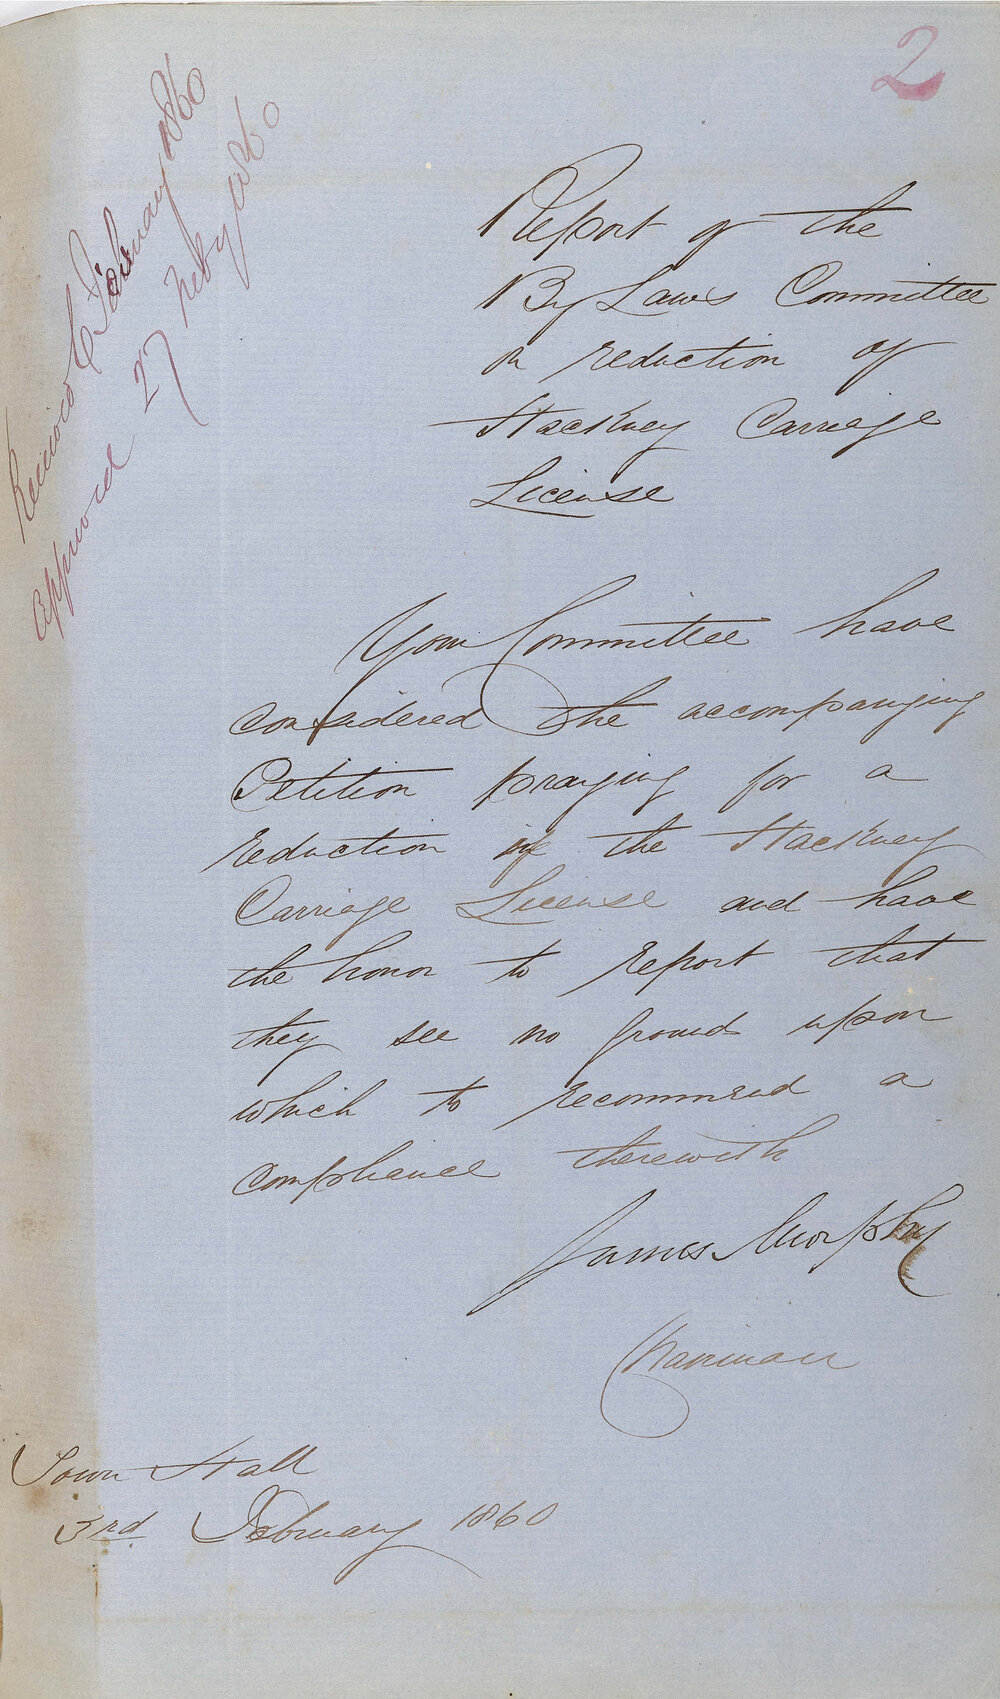 2
Received 6 February 1860
Approved 27 Feby 1860
Report of the
By Laws Committee
on reduction of
Hackney Carriage
License
Your Committee have
considered the accompanying
Petition praying for a
reduction of the Hackney
Carriage License and have
the honor to report that
they see no ground upon
which to recommend a
compliance therewith
James Murphy
Chairman
Town Hall
3rd February 1860